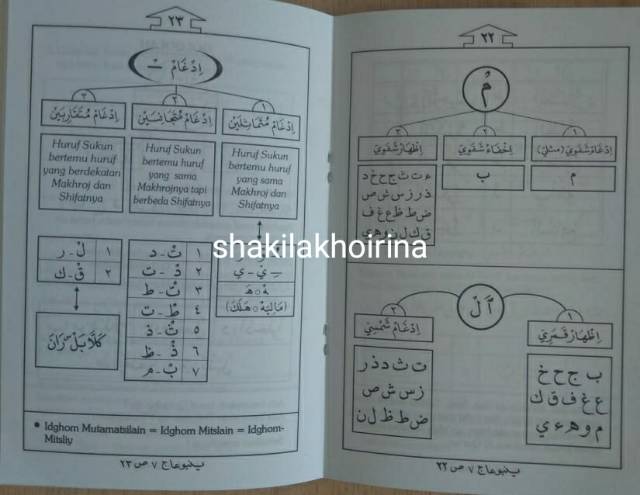 ٢٢
مْ
١
إِدْغَامْ شَفَوِيْ (مِثْلِيْ)
م
٢
إِخْفَاءْ شَفَوِيْ
ب
٣
إِظْهَارْ شَفَوِيْ
ء ت ث ج ح خ د
ذ ر ز س ش ص
ض ط ظ ع غ ف
ق ك ل ن و هـ ي
اَلْ
١
إِظْهَارْ قَمَرِيْ
ب ج ح خ
ع غ ف ق ك
م و هـ ء ي
٢
إِدْغَامْ شَمْسِيْ
ت ث د ذ ر
ز س ش ص
ض ط ظ ل ن
ينبوعا ج ٧ ص ٢٢
٢٣
إِدْغَامْ
١
إِدْغَامْ مُتَمَاثِلَيْنْ
Huruf Sukun
bertemu huruf
yang sama
Makhroj dan
Shifatnya
يْ - ي
هْ ٥ هـ
(مَالِيَهْ ٥ هَلَكَ)
٢
إِدْغَامْ مُتَجَانِسَيْنْ
Huruf Sukun
bertemu huruf
yang sama
Makhrojnya tapi
berbeda Shifatnya
١ تْ - د
٢ دْ - ت
٣ تْ - ط
٤ طْ - ت
٥ ثْ - ذ
٦ ذْ - ظ
٧ بْ - م
٣
إِدْغَامْ مُتَقَارِبَيْنْ
Huruf Sukun
bertemu huruf
yang berdekatan
Makhroj dan
Shifatnya
١ لْ - ر
٢ قْ - ك
كَلَّا بَلْ رَانَ
• Idghom Mutamatsilain = Idghom Mitslain = Idghom-
Mitsliy
ينبوعا ج ٧ ص ٢٣
shakilakhoirina